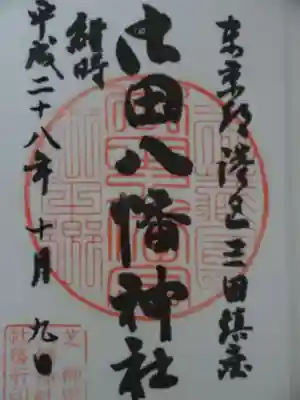 東京都港区三田鎮座
御田八幡神社
平成二十八年十月九日